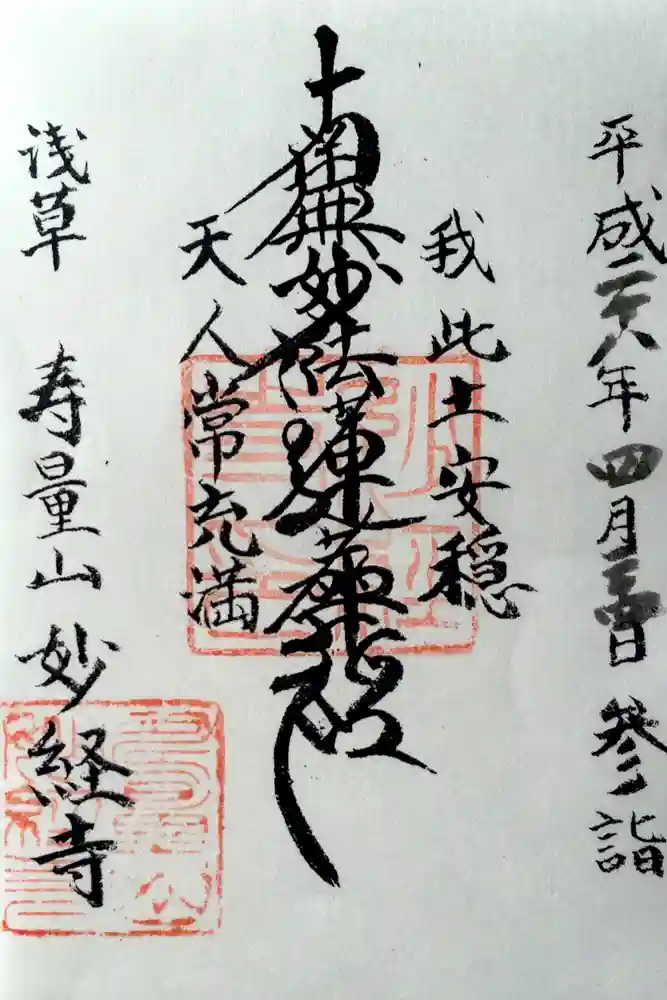 平成二十八年四月日 参詣
我此土安穏
南無妙法蓮華経
天人常充満
浅草 寿量山 妙経寺